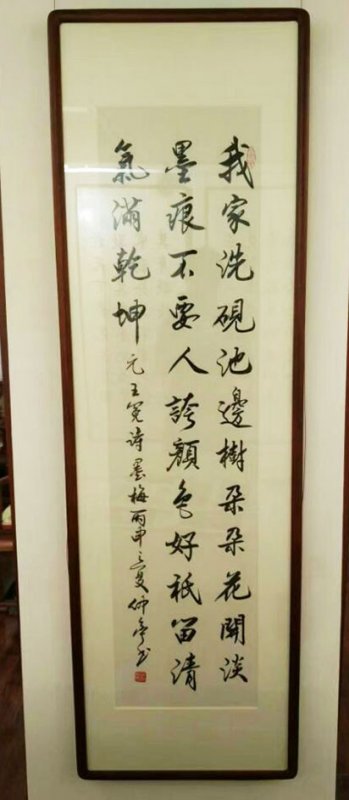 我家洗硯池邊樹朵朵花開淡
墨痕不要人誇顏色好祇留清
氣滿乾坤 元王冕詩墨梅丙申之夏仲亭书